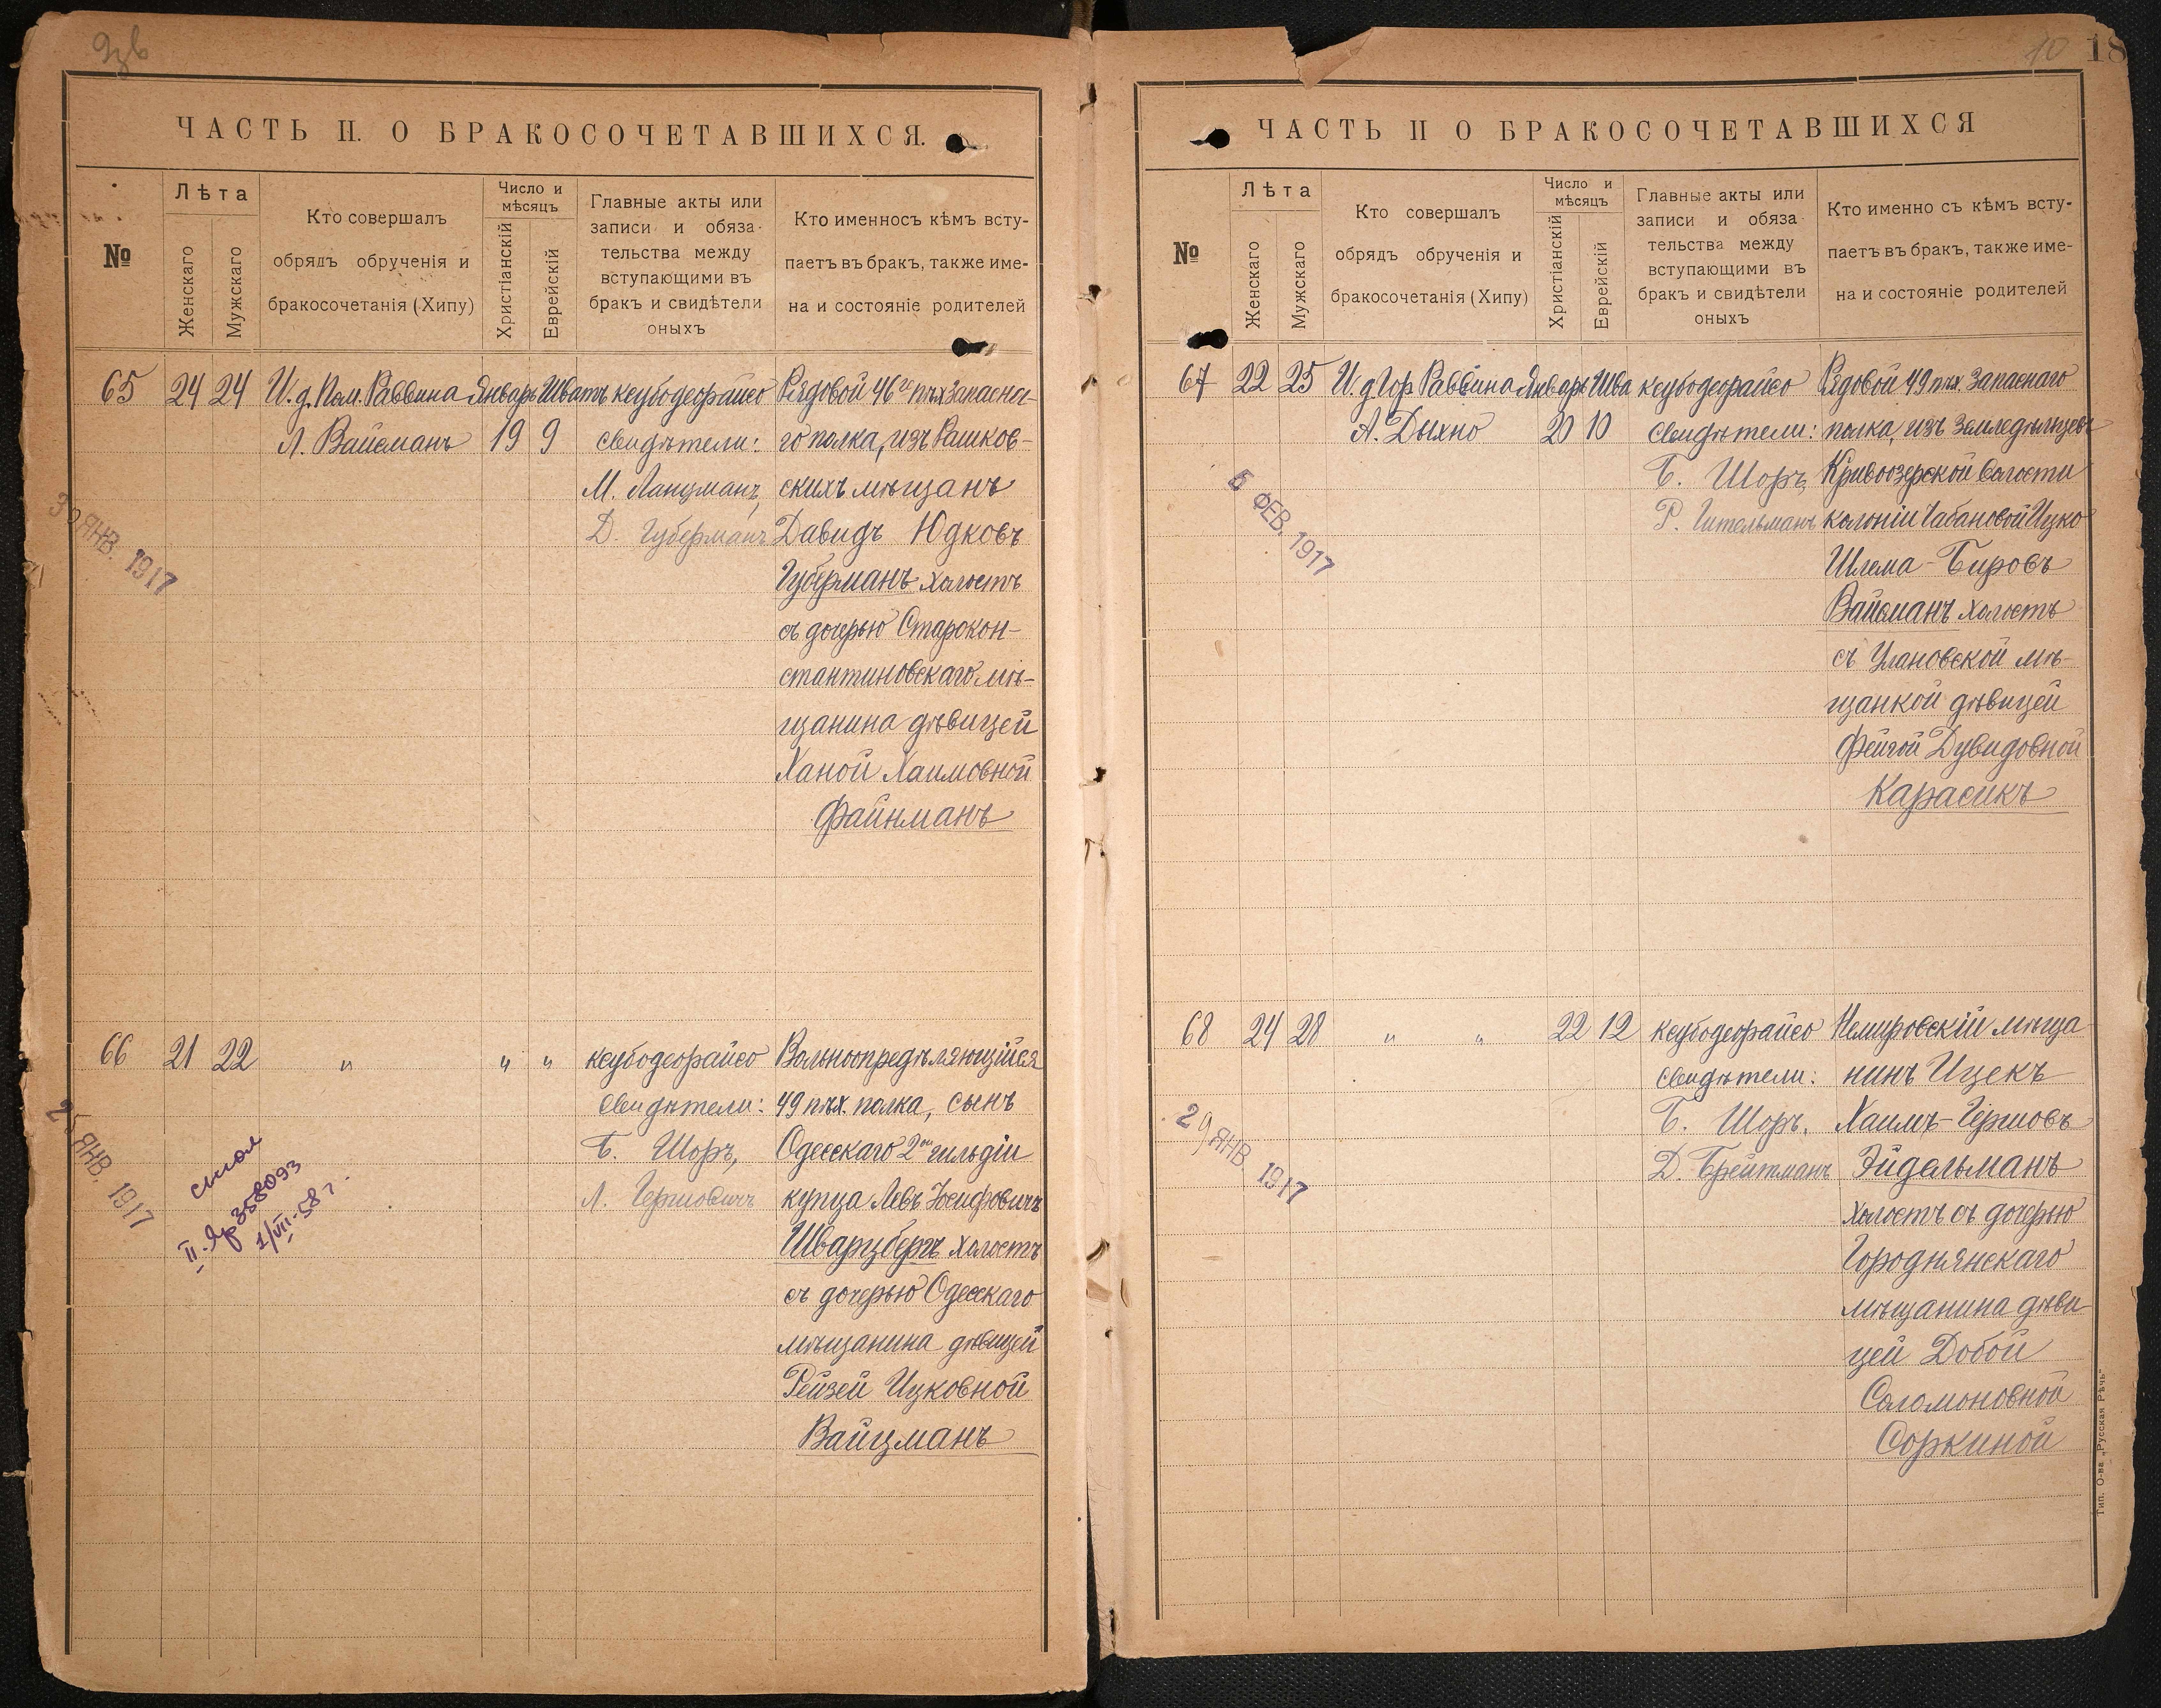 ЧАСТЬ II. О БРАКОСОЧЕТАВШИХСЯ.
№
Лѣта
Женскаго
Мужскаго
Кто совершалъ
обрядъ обрученія и
бракосочетанія (Хипу)
Число и
мѣсяцъ
Христіанскій
Еврейскій
Главные акты или
записи и обяза-
тельства между
вступающими въ
бракъ и свидѣтели
оныхъ
Кто именносъ кѣмъ всту-
паетъ въ бракъ, также име-
на и состояніе родителей
65 24 24 И. д. Пом. Раввина Январь Шватъ ксубодеорайсо Рядовой 46го пѣх Запасна-
Л. Вайсманъ 19 9 свидѣтели: го полка, изъ Рашков-
М. Ланцманъ, скихъ мѣщанъ
Д. Губерманъ Давидъ Юдковъ
Губерманъ холостъ
съ дочерью Старокон-
стантиновскаго мѣ-
щанина дѣвицей
Ханой Хаимовной
Файнманъ
30 ЯНВ. 1917
66 21 22 " " " ксубодеорайсо Вольноопредѣляющійся
свидѣтели: 49 пѣх. полка, сынъ
Б. Шоръ, Одесскаго 2ой гильдіи
Л. Гершовичъ купца Левъ Іосифовичъ
Шварцбергъ холостъ
съ дочерью Одесскаго
мѣщанина дѣвицей
Рейзей Ицковной
Вайцманъ
ЯНВ. 1917
II-Яр 358093
1/VII-58 г.
10
18
ЧАСТЬ II О БРАКОСОЧЕТАВШИХСЯ
№
Лѣта
Женскаго
Мужскаго
Кто совершалъ
обрядъ обрученія и
бракосочетанія (Хипу)
Число и
мѣсяцъ
Христіанскій
Еврейскій
Главные акты или
записи и обяза-
тельства между
вступающими въ
бракъ и свидѣтели
оныхъ
Кто именно съ кѣмъ всту-
паетъ въ бракъ, также име-
на и состояніе родителей
67 22 25 И. д. Гор. Раввина Январь Шва ксубодеорайсо Рядовой 49 пѣх. Запаснаго
А. Дыхно 20 10 свидѣтели: полка, изъ Земледѣльцевъ
Б. Шоръ, Кривоозерской волости
Р. Гительманъ колоніи Чабановой Ицко
Шлема-Беровъ
Вайсманъ холостъ
съ Улановской мѣ-
щанкой дѣвицей
Фейгой Дувидовной
Карасикъ
5 ФЕВ. 1917
68 24 28 " " 22 12 ксубодеорайсо Немировскій мѣща
свидѣтели: нинъ Ицекъ
Б. Шоръ, Хаимъ-Гершовъ
Д. Брейтманъ Эйдельманъ
холостъ съ дочерью
Городнянскаго
мѣщанина дѣви-
цей Добой
Соломоновной
Соркиной
29 ЯНВ. 1917
Тип. О-ва „Русская Рѣчь"